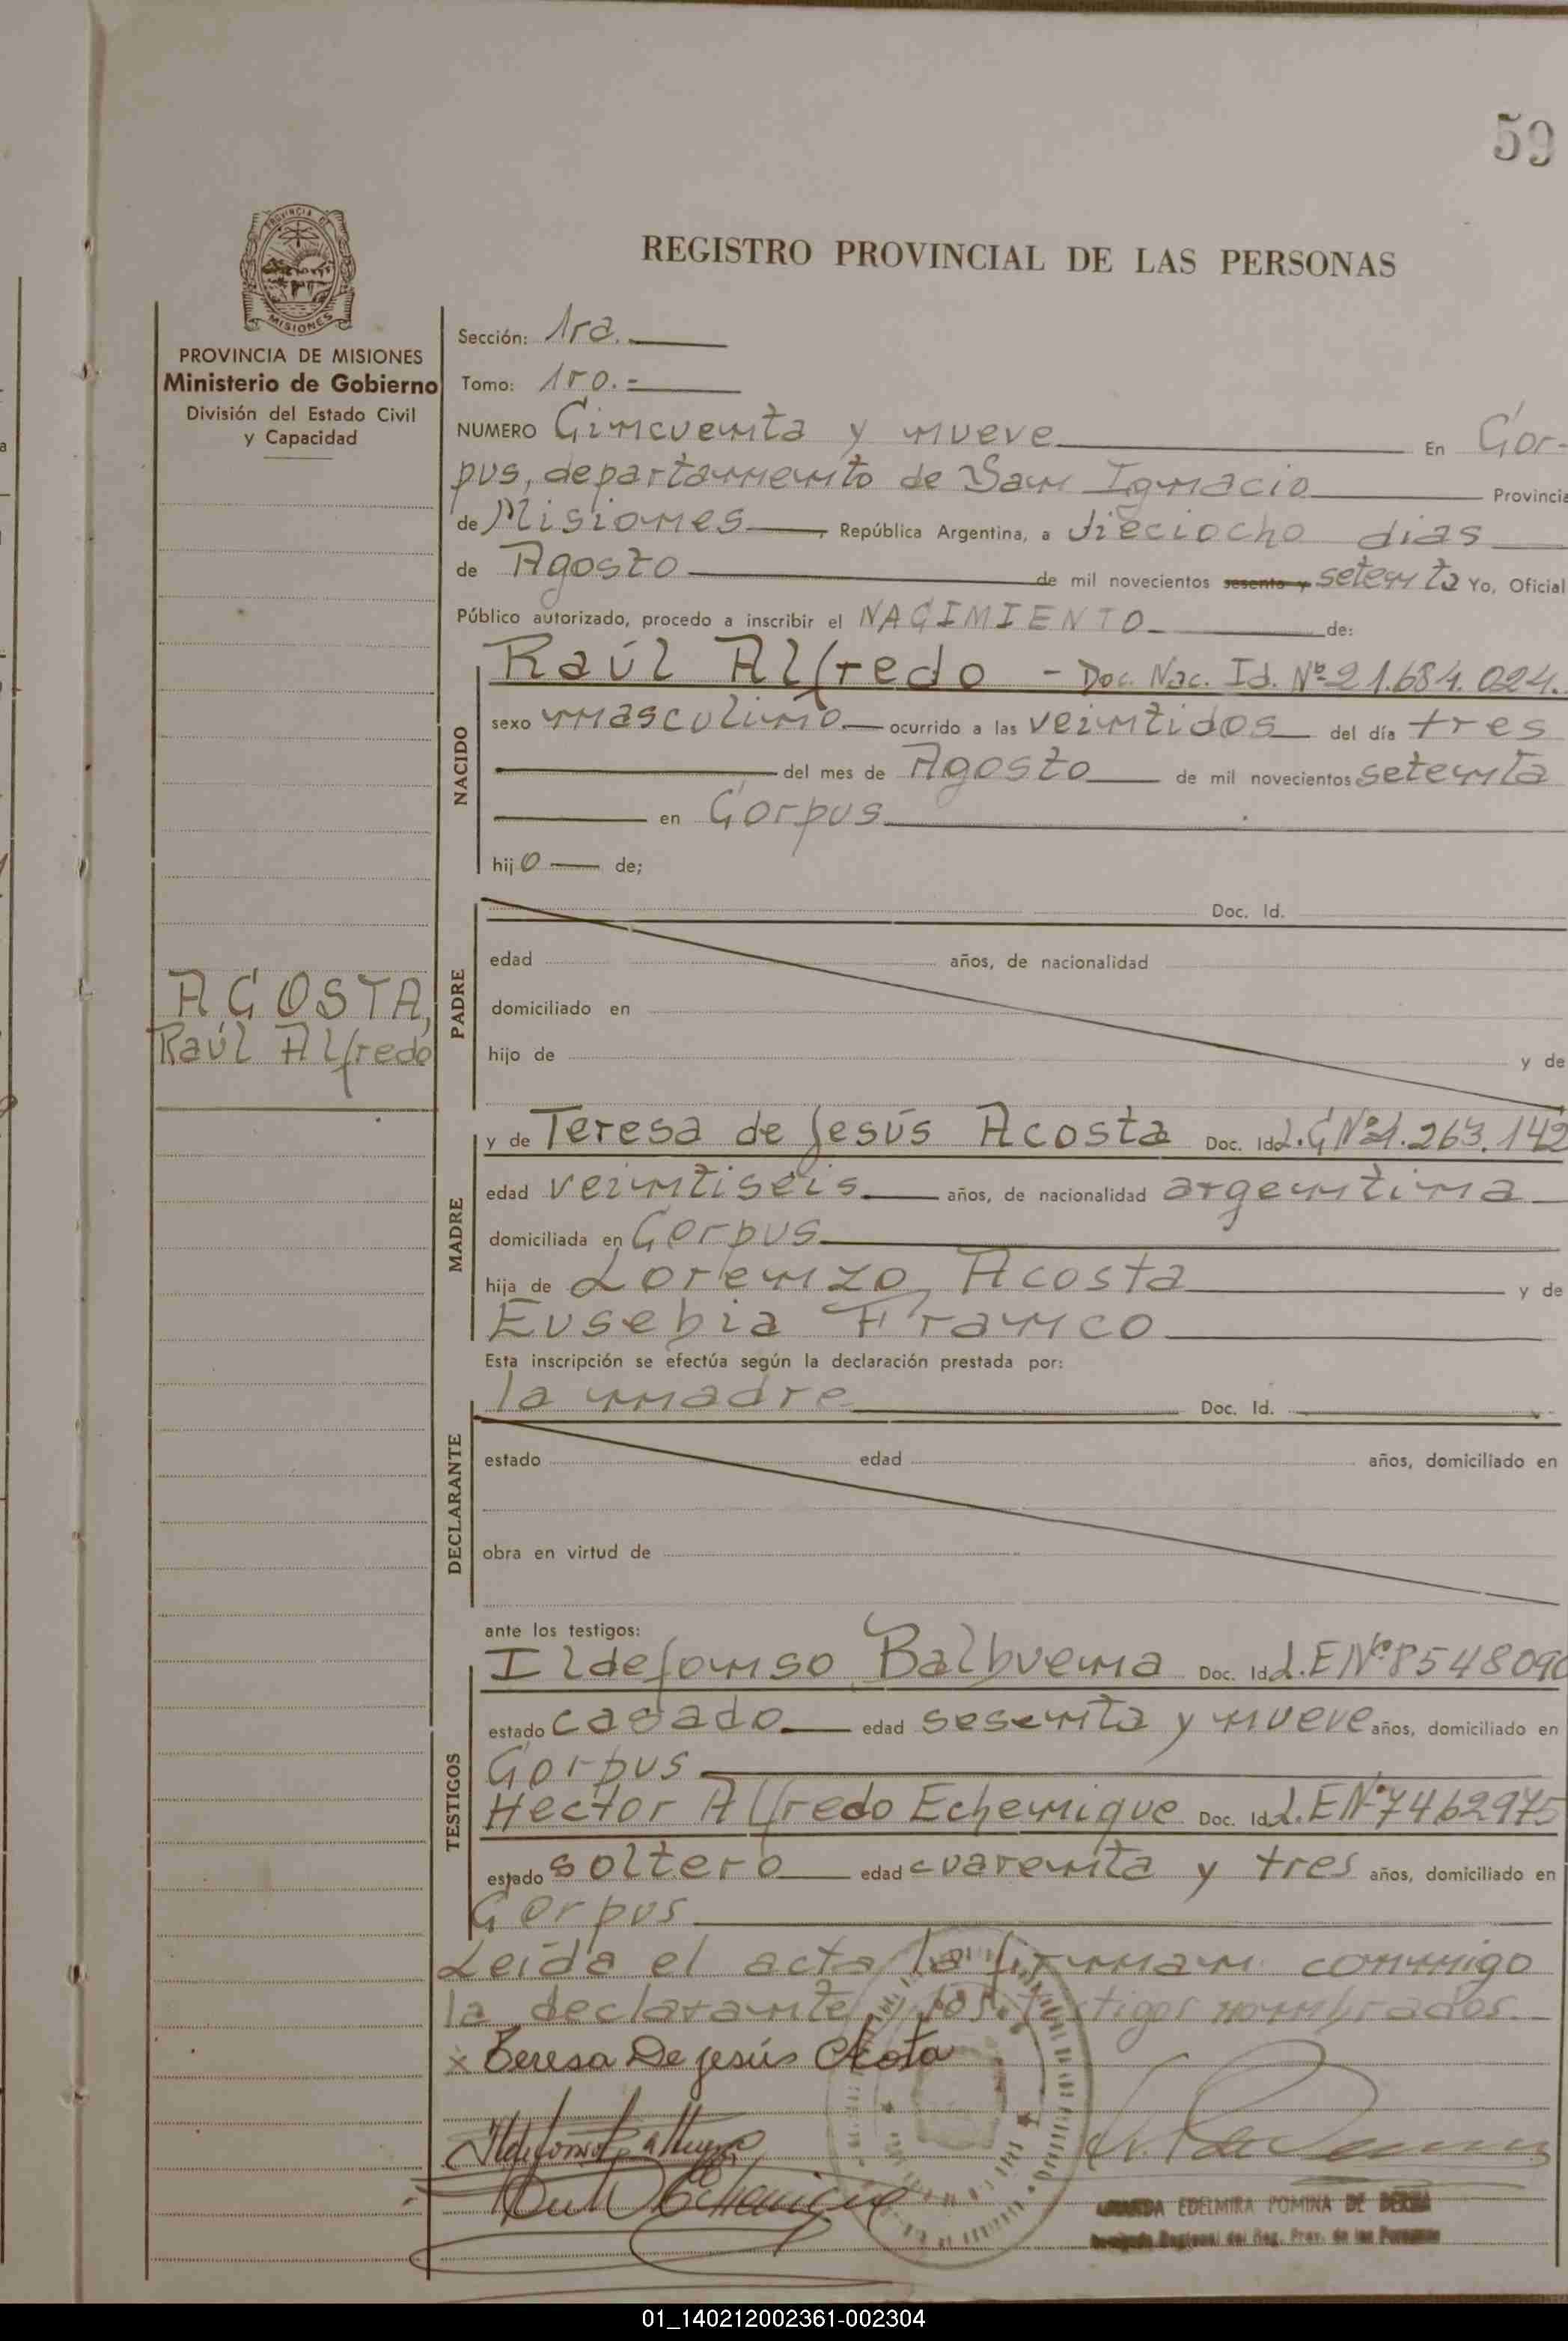 59
PROVINCIA DE MISIONES
PROVINCIA DE MISIONES
Ministerio de Gobierno
División del Estado Civil
y Capacidad
ACOSTA,
Raúl Alfredo
REGISTRO PROVINCIAL DE LAS PERSONAS
Sección: 1ra.
Tomo: 1ro.-
NUMERO Cincuenta y nueve En Cor-
pus, departamento de San Ignacio Provincia
de Misiones, República Argentina, a dieciocho dias
de Agosto de mil novecientos sesenta y setenta Yo, Oficial
Público autorizado, procedo a inscribir el NACIMIENTO de:
NACIDO
Raúl Alfredo - Doc. Nac. Id. Nº 21.684.024.
sexo masculino ocurrido a las veintidos del día tres
del mes de Agosto de mil novecientos setenta
en Corpus
hijo de;
PADRE
Doc. Id.
edad años, de nacionalidad
domiciliado en
hijo de y de
MADRE
y de Teresa de Jesús Acosta Doc. Id. L.C Nº 1.263.142
edad veintiseis años, de nacionalidad argentina
domiciliada en Corpus
hija de Lorenzo Acosta y de
Eusebia Franco
Esta inscripción se efectúa según la declaración prestada por:
DECLARANTE
la madre Doc. Id.
estado edad años, domiciliado en
obra en virtud de
ante los testigos:
TESTIGOS
Ildefonso Balbuena Doc. Id. L.E Nº 8548090
estado casado edad sesenta y nueve años, domiciliado en
Corpus
Hector Alfredo Echenique Doc. Id. L.E Nº 7462975
estado soltero edad cuarenta y tres años, domiciliado en
Corpus
Leida el acta la firman conmigo
la declarante y los testigos nombrados.
x Teresa De jesús Acosta
EDELMIRA POMINA DE
Regional del Reg. Prov. de las Personas
01_140212002361-002304